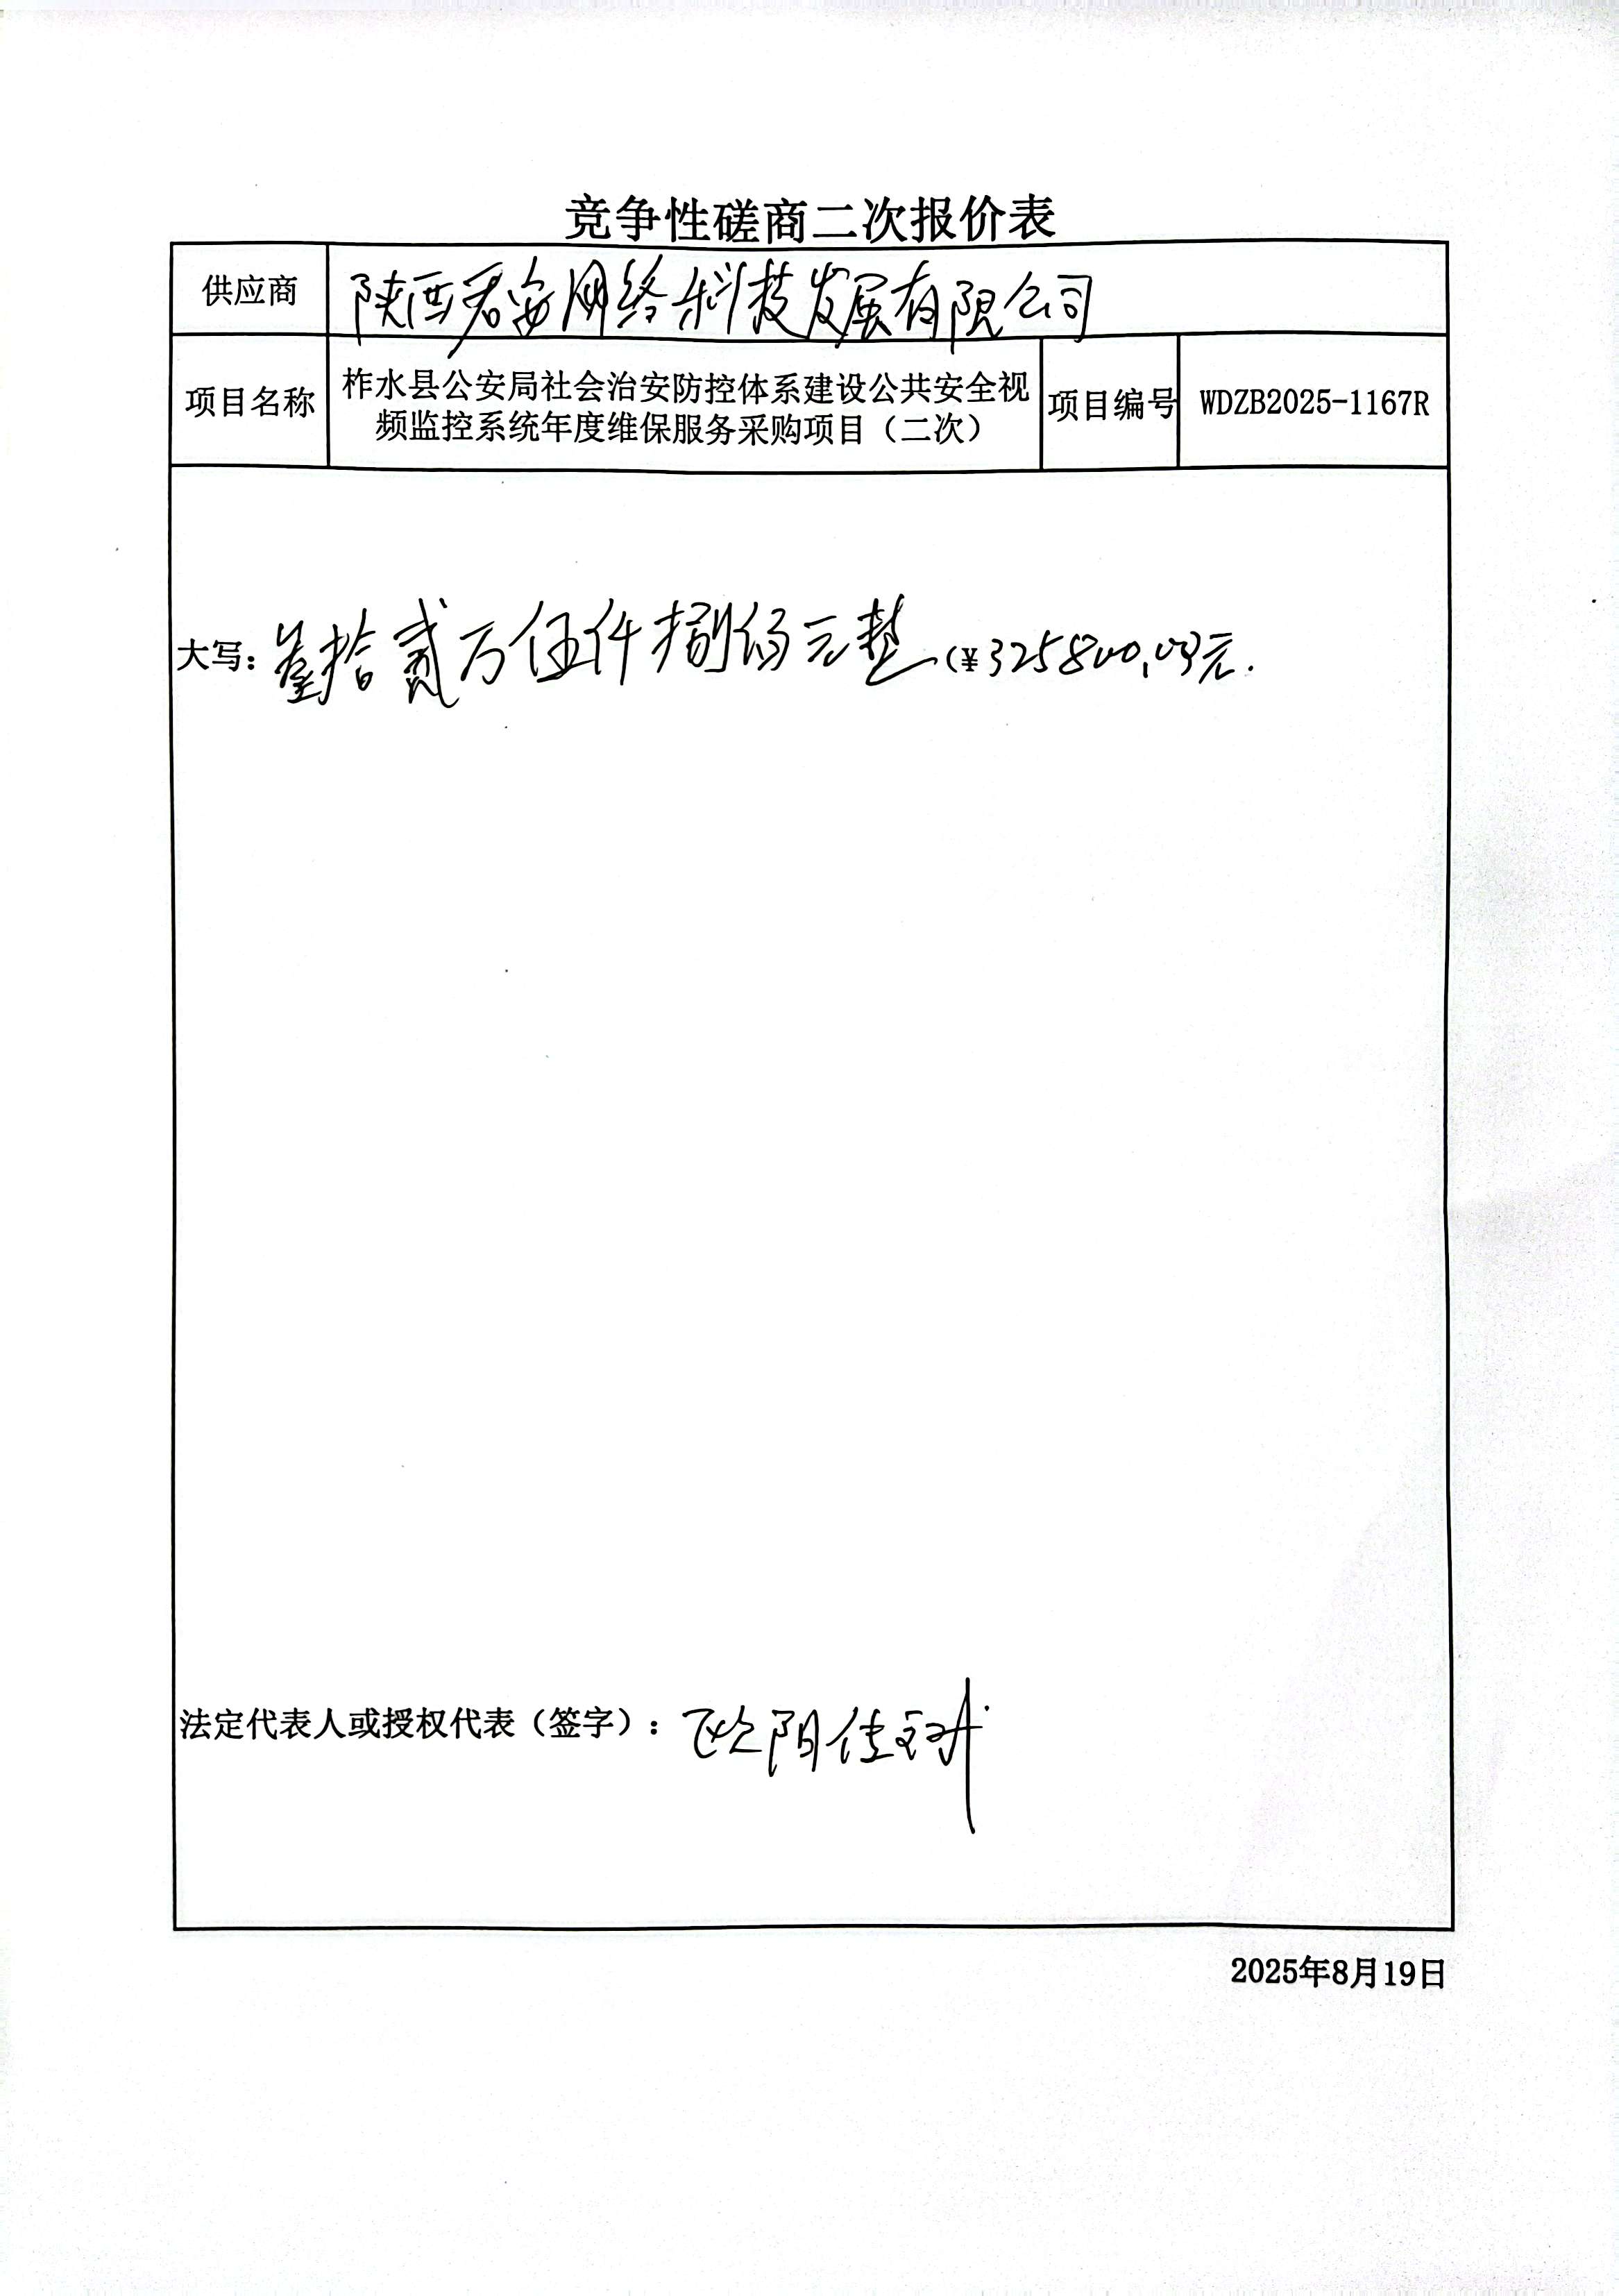 竞争性磋商二次报价表
供应商 陕西君安网络科技发展有限公司
项目名称 柞水县公安局社会治安防控体系建设公共安全视
频监控系统年度维保服务采购项目（二次） 项目编号 WDZB2025-1167R
大写：叁拾贰万伍仟捌佰元整 (¥325800.00元.
法定代表人或授权代表（签字）：欧阳佳
2025年8月19日